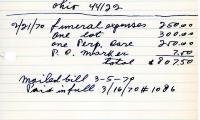 Ohio 44122
2/21/70 funeral expenses 250.00
one lot 300.00
one Perp. Care 250.00
P.O. marker 7.50
total $807.50
Mailed bill 3-5-79
Paid in full 3/16/70 #1086